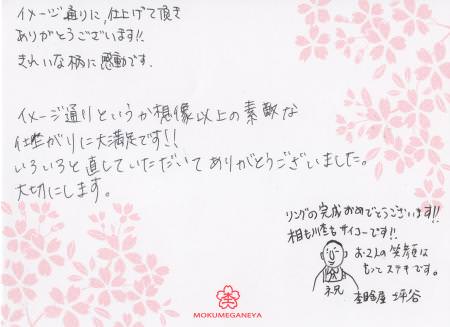 イメージ通りに、仕上げて頂き
ありがとうございます!!
きれいな柄に感動です.
イメージ通りというか想像以上の素敵な
仕上がりに大満足です!!
いろいろと直していただいてありがとうございました。
大切にします。
リングの完成おめでとうございます!!
相もサイコーです!!
お二人の笑顔は
もっとステキです。
祝
杢目金屋 坪谷
MOKUMEGANEYA